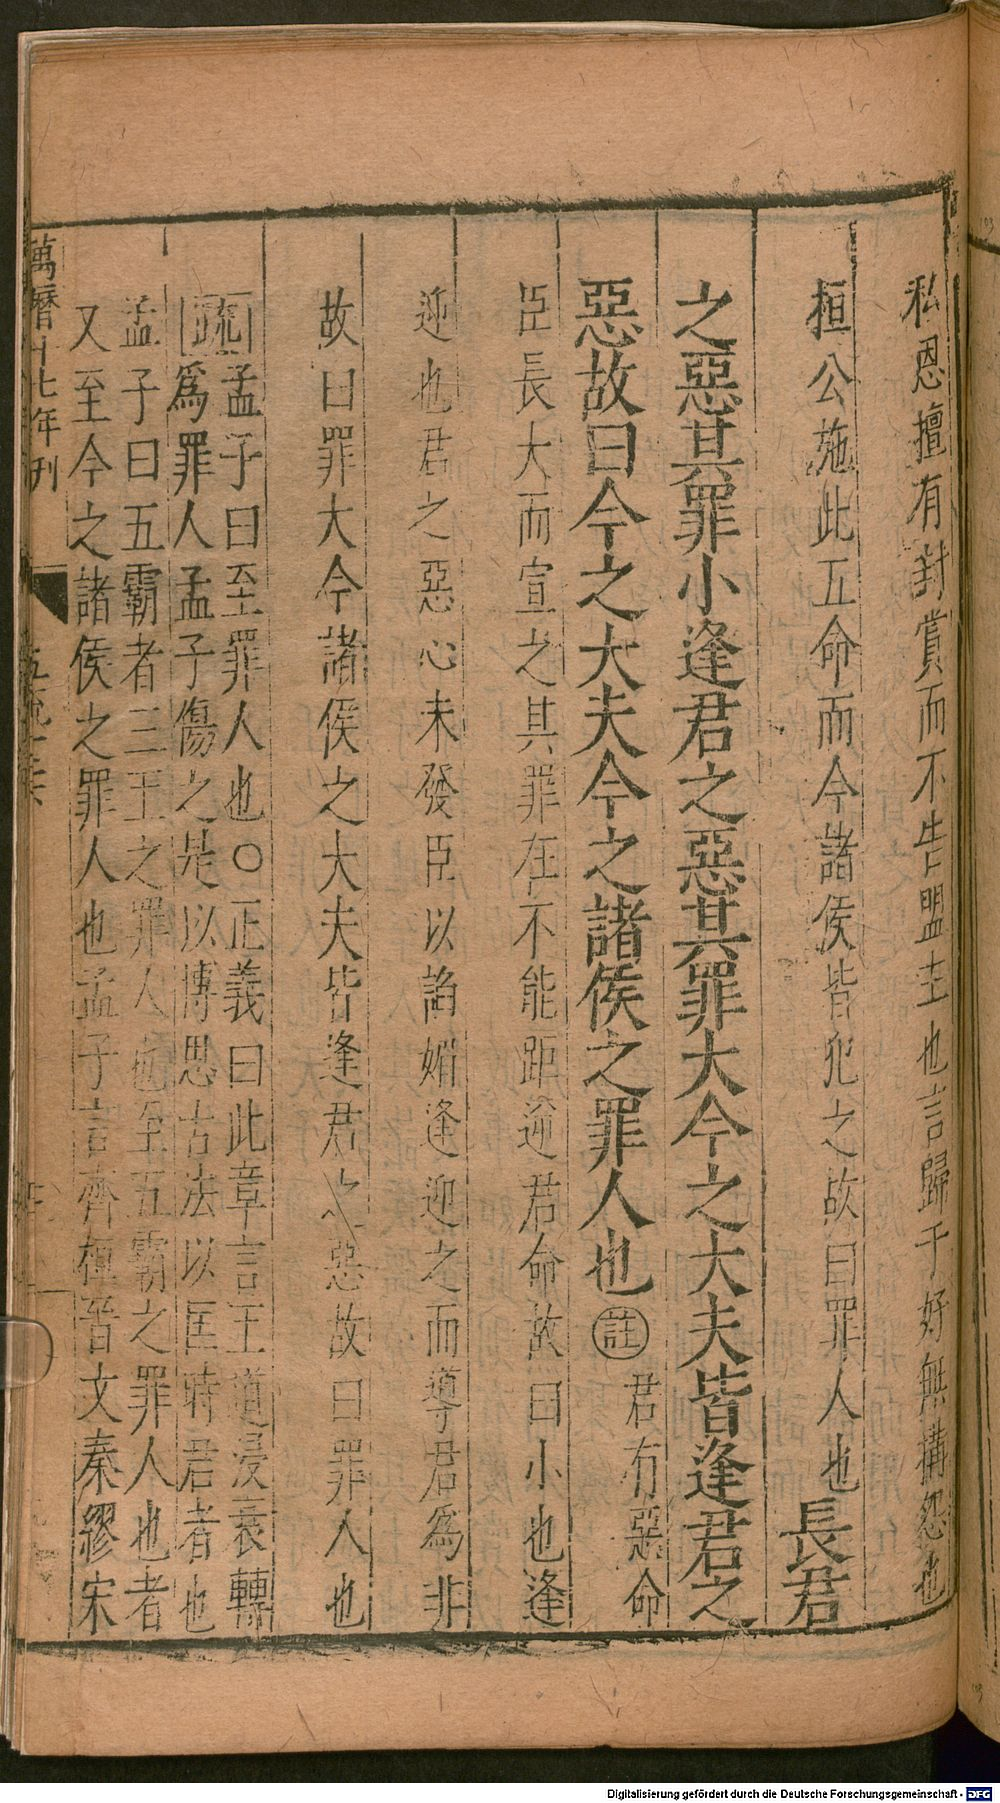 私恩擅有封賞而不告盟主也言歸于好無搆怨也
桓公施此五命而今諸侯皆犯之故曰罪人也長君
之惡其罪小逢君之惡其罪大今之大夫皆逢君之
惡故曰今之大夫今之諸侯之罪人也註君有惡命
臣長大而宣之其罪在不能距逆君命故曰小也逢
迎也君之惡心未發臣以諂媚逢迎之而導君為非
故曰罪大今諸侯之大夫皆逢君之惡故曰罪人也
疏孟子曰至罪人也○正義曰此章言王道浸衰轉
為罪人孟子傷之是以博思古法以匡時君者也
孟子曰五霸者三王之罪人也至五霸之罪人也者
又至今之諸侯之罪人也孟子言齊桓晉文秦繆宋
萬曆十七年刊
Digitalisierung gefördert durch die Deutsche Forschungsgemeinschaft - DFG